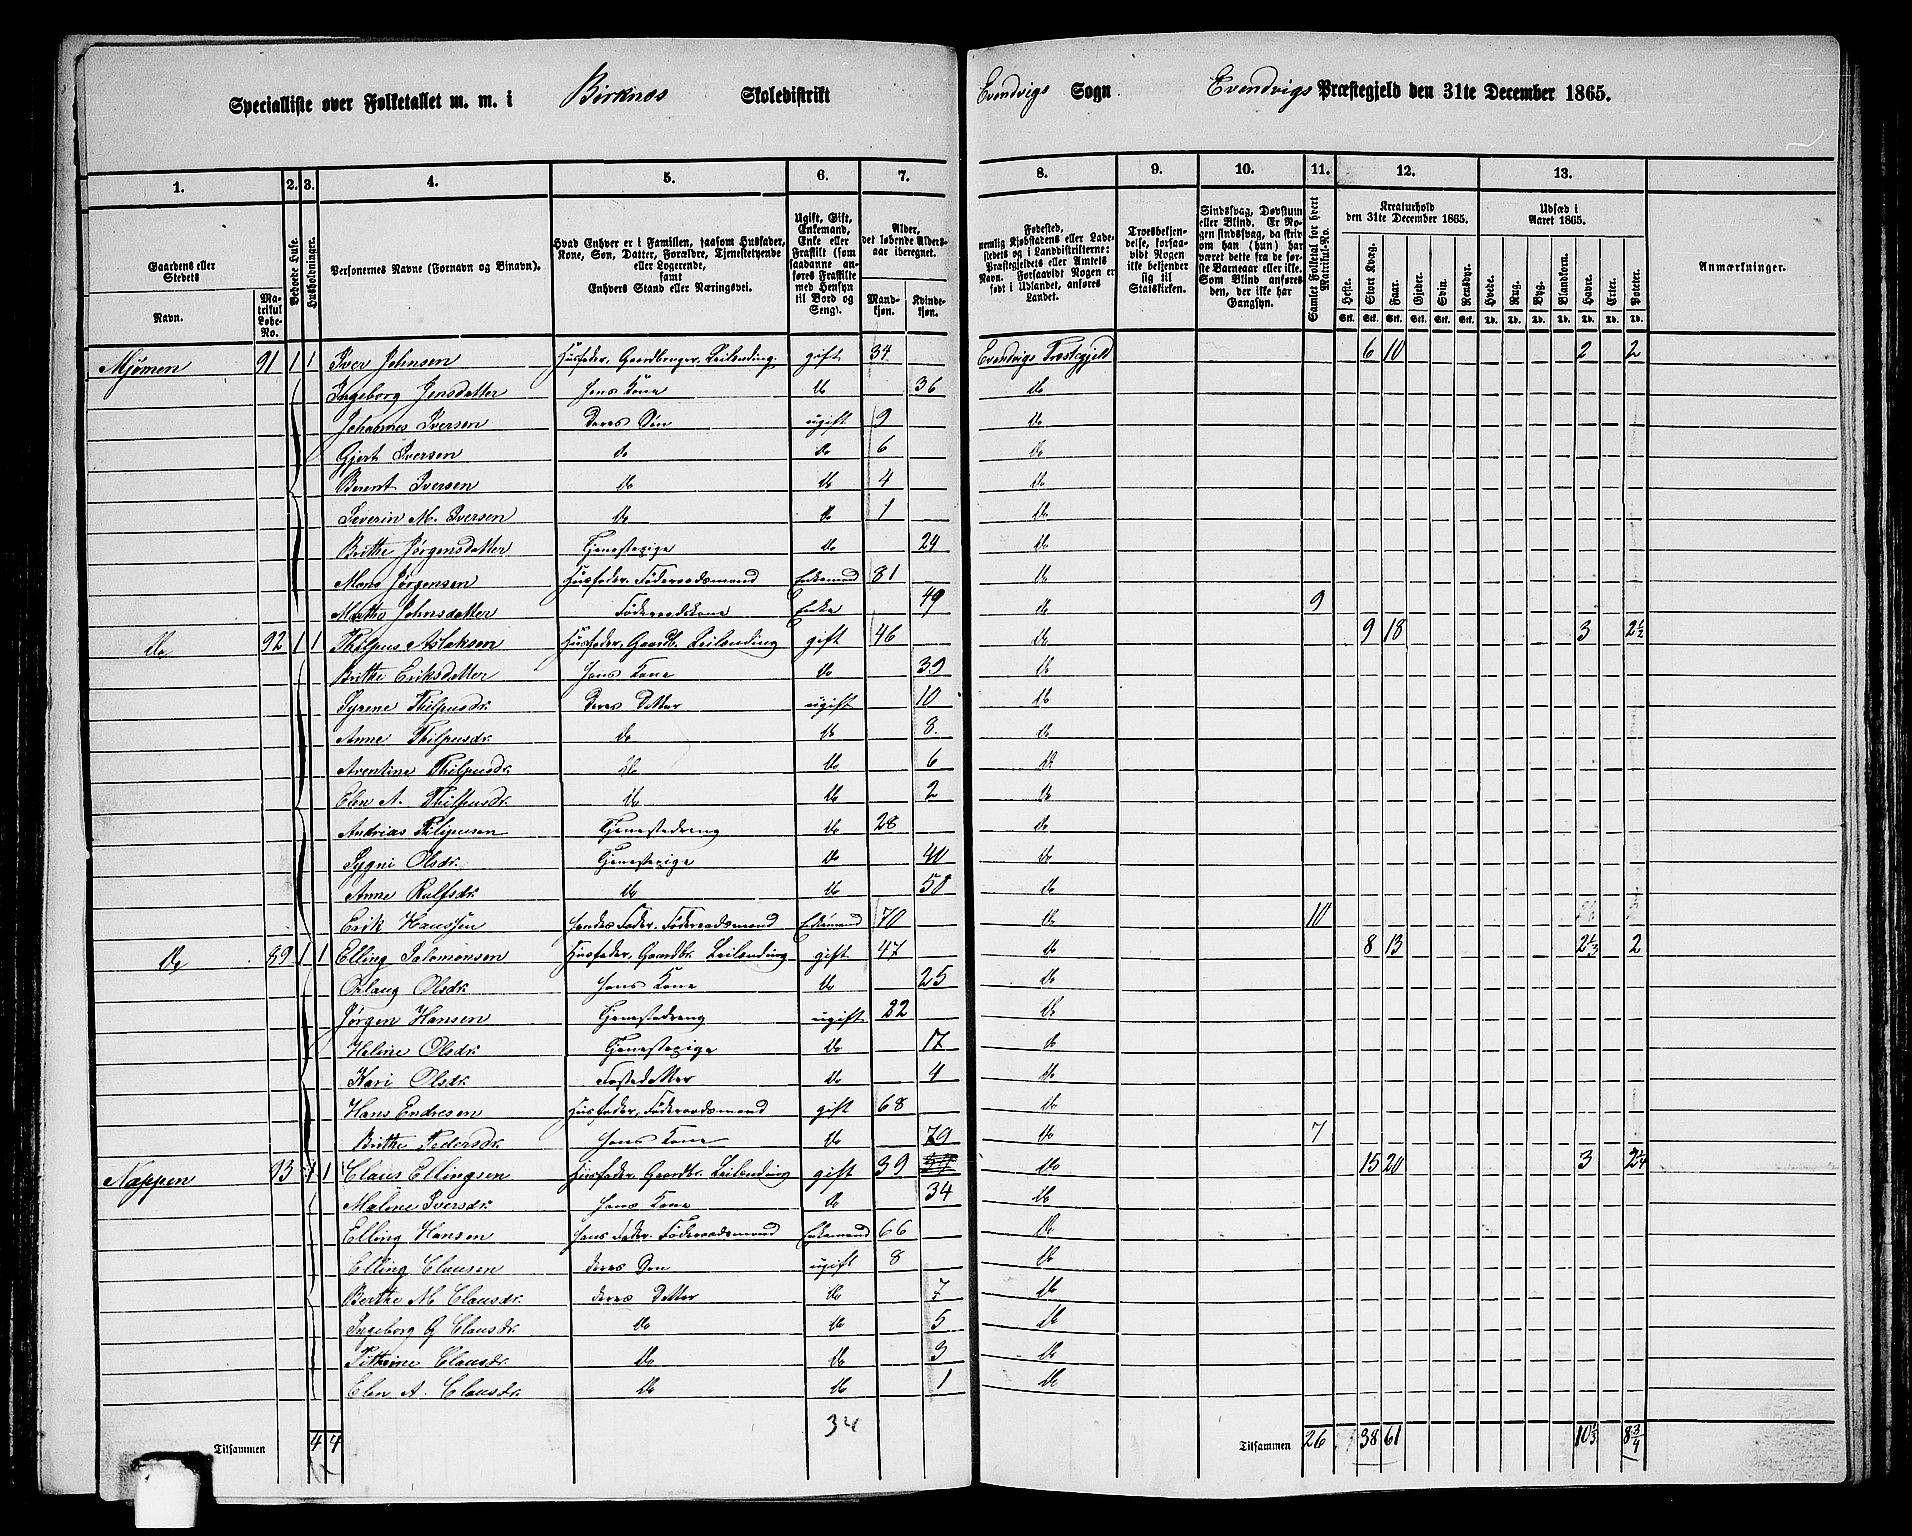 Specialliste over Folketallet m. m. i Birknes Skoledistrikt Evendvigs Sogn Evendvigs Præstegjeld den 31te December 1865.
1. 2. 3. 4. 5. 6. 7. 8. 9. 10. 11. 12. 13.
Gaardens eller Stedets Navn. Matrikul Løbe-No. Beboede Huse. Husholdninger. Personernes Navne (Fornavn og Binavn). Hvad Enhver er i Familien, saasom Husfader, Kone, Søn, Datter, Forældre, Tjenestetyende eller Logerende, samt Enhvers Stand eller Næringsvei. Ugift, Gift, Enkemand, Enke eller Fraskilt (som saadanne anføres Fraskilte med Hensyn til Bord og Seng). Alder, det løbende Alders-aar iberegnet. Mandkjøn. Kvindekjøn. Fødested, nemlig Kjøbstadens eller Ladestedets og i Landdistrikterne: Præstegjeldets eller Amtets Navn. Forsaavidt Nogen er født i Udlandet, anføres Landet. Troesbekjendelse, forsaavidt Nogen ikke bekjender sig til Statskirken. Sindssvag, Døvstum eller Blind. Er Nogen sindssvag, da skriv om han (hun) har været dette fra de første Barneaar eller ikke. Som Blind anføres den, der ikke har Gangsyn. Samlet Folketal for hvert Matrikul-No. Kreaturhold den 31te December 1865. Heste. Stort Kvæg. Faar. Gjeder. Svin. Rensdyr. Udsæd i Aaret 1865. Hvede. Rug. Byg. Blandkorn. Havre. Erter. Poteter. Anmærkninger.
Stk. Stk. Stk. Stk. Stk. Stk. Td. Td. Td. Td. Td. Td. Td.
Mjømen 91 1 1 Iver Johnsen Husfader, Gaardbruger, Leilænding gift 34 Evendvigs Præstegjeld 6 10 2 2
Ingeborg Jensdatter Hans Kone do 36 do
Johannes Iversen Deres Søn ugift 9 do
Gjert Iversen do do 6 do
Berent Iversen do do 4 do
Severin M. Iversen do do 1 do
Brithe Jørgensdatter Tjenestepige do 29 do
Mons Jørgensen Husfader, Føderaadsmand Enkemand 81 do
Marthe Johnsdatter Føderaadskone Enke 49 do 9
do 92 1 1 Philpus Aslaksen Husfader, Gaardb. Leilænding gift 46 do 9 18 3 2½
Brithe Eriksdatter Hans Kone do 39 do
Syrene Philpusdr. Deres Datter ugift 10 do
Anne Philpusdr. do do 8 do
Arentine Philpusdr. do do 6 do
Elen A. Philpusdr. do do 2 do
Andrias Filipusen Tjenestedreng do 28 do
Sygni Olsdr. Tjenestepige do 40 do
Anne Rulfsdr. do do 50 do
Erik Hanssen Hendes Fader, Føderaadsmand Enkemand 70 do 10
do 89 1 1 Elling Salomonsen Husfader, Gaardbr. Leilænding gift 47 do 8 13 2⅓ 2
Orlaug Olsdr. Hans Kone do 25 do
Jørgen Hansen Tjenestedreng ugift 22 do
Heline Olsdr. Tjenestepige do 17 do
Kari Olsdr. Fostedatter do 4 do
Hans Endresen Husfader, Føderaadsmand gift 68 do
Brithe Pedersdr. Hans Kone do 79 do 7
Næppen 93 1 1 Claus Ellingsen Husfader, Gaardbr. Leilænding gift 39 do 15 20 3 2¼
Malene Iversdr. Hans Kone do 34 do
Elling Hansen Hans Fader, Føderaadsmand Enkemand 66 do
Elling Clausen deres Søn ugift 8 do
Berthe M Clausdr. deres Datter do 7 do
Ingeborg G Clausdr. do do 5 do
Pethrine Clausdr. do do 3 do
Elen A. Clausdr. do do 1 do
34
Tilsammen 4 4 Tilsammen 26 38 61 10⅓ 8¾